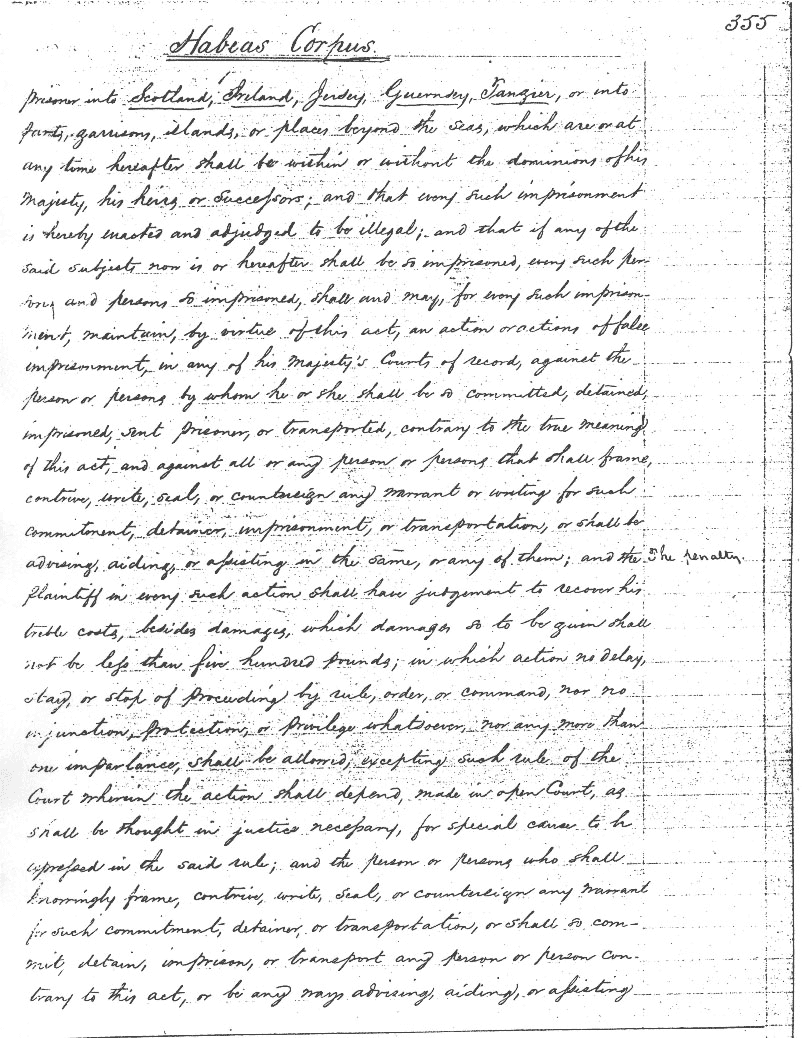 355
Habeas Corpus.
prisoner into Scotland, Ireland, Jersey, Guernsey, Tangier, or into
forts, garrisons, islands, or places beyond the seas, which are or at
any time hereafter shall be within or without the dominions of his
Majesty, his heirs or successors; and that every such imprisonment
is hereby enacted and adjudged to be illegal; and that if any of the
said subjects now is or hereafter shall be so imprisoned, every such per-
son, and persons so imprisoned, shall and may, for every such imprison-
ment, maintain, by virtue of this act, an action or actions of false
imprisonment, in any of his Majesty's Courts of record, against the
person or persons by whom he or she shall be so committed, detained,
imprisoned, sent prisoner, or transported, contrary to the true meaning
of this act, and against all or any person or persons that shall frame,
contrive, write, seal, or countersign any warrant or writing for such
commitment, detainer, imprisonment, or transportation, or shall be
advising, aiding, or assisting in the same, or any of them; and the
The penalty.
plaintiff in every such action shall have judgement to recover his
treble costs, besides damages, which damages so to be given shall
not be less than five hundred pounds; in which action no delay,
stay, or stop of proceeding by rule, order, or command, nor no
injunction, protection, or privilege whatsoever, nor any more than
one imparlance, shall be allowed, excepting such rule of the
Court wherein the action shall depend, made in open Court, as
shall be thought in justice necessary, for special cause to be
expressed in the said rule; and the person or persons who shall
knowingly frame, contrive, write, seal, or countersign any warrant
for such commitment, detainer, or transportation, or shall so com-
mit, detain, imprison, or transport any person or person con-
trary to this act, or be any ways advising, aiding, or assisting